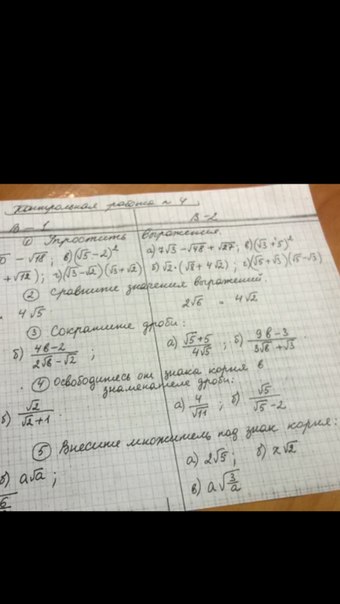 Контрольная работа № 4
В – 1 В – 2
① Упростить выражения
– √18; в) (√5 – 2)² а) 7√3 – √48 + √27; в) (√3 + 5)²
+ √12); г) (√3 – √2)(√3 + √2) б) √2 · (√8 + 4√2); г) (√5 + √3)(√5 – √3)
② Сравните значения выражений
4√5 2√6 4√2
③ Сократите дроби:
б) (4в – 2)/(2√в – √2); а) (√5 + 5)/(4√5); б) (9в – 3)/(3√в + √3)
④ Освободитесь от знака корня в
знаменателе дроби:
б) √2/(√2 + 1) а) 4/√11; б) √5/(√5 – 2)
⑤ Внесите множитель под знак корня:
б) a√a; а) 2√5; б) x√2
в) a√(3/a)